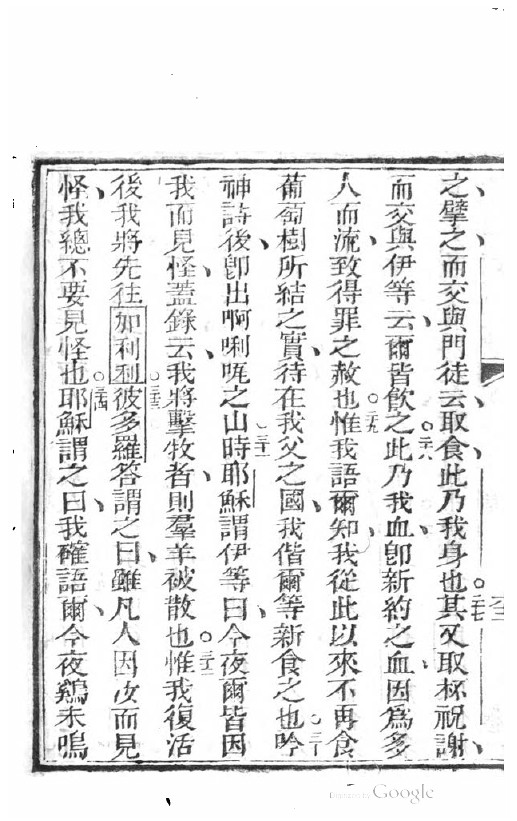 之擘之而交與門徒云取食此乃我身也其又取杯祝謝
而交與伊等云爾皆飲之此乃我血卽新約之血因爲多
人而流致得罪之赦也惟我語爾知我從此以來不再食
葡萄樹所結之實待在我父之國我偕爾等新食之也吟
神詩後卽出啊唎㖿之山時耶穌謂伊等曰今夜爾皆因
我而見怪蓋錄云我將擊牧者則羣羊被散也惟我復活
後我將先往加利利彼多羅答謂之曰雖凡人因汝而見
怪我總不要見怪也耶穌謂之曰我確語爾今夜鷄未鳴
Google